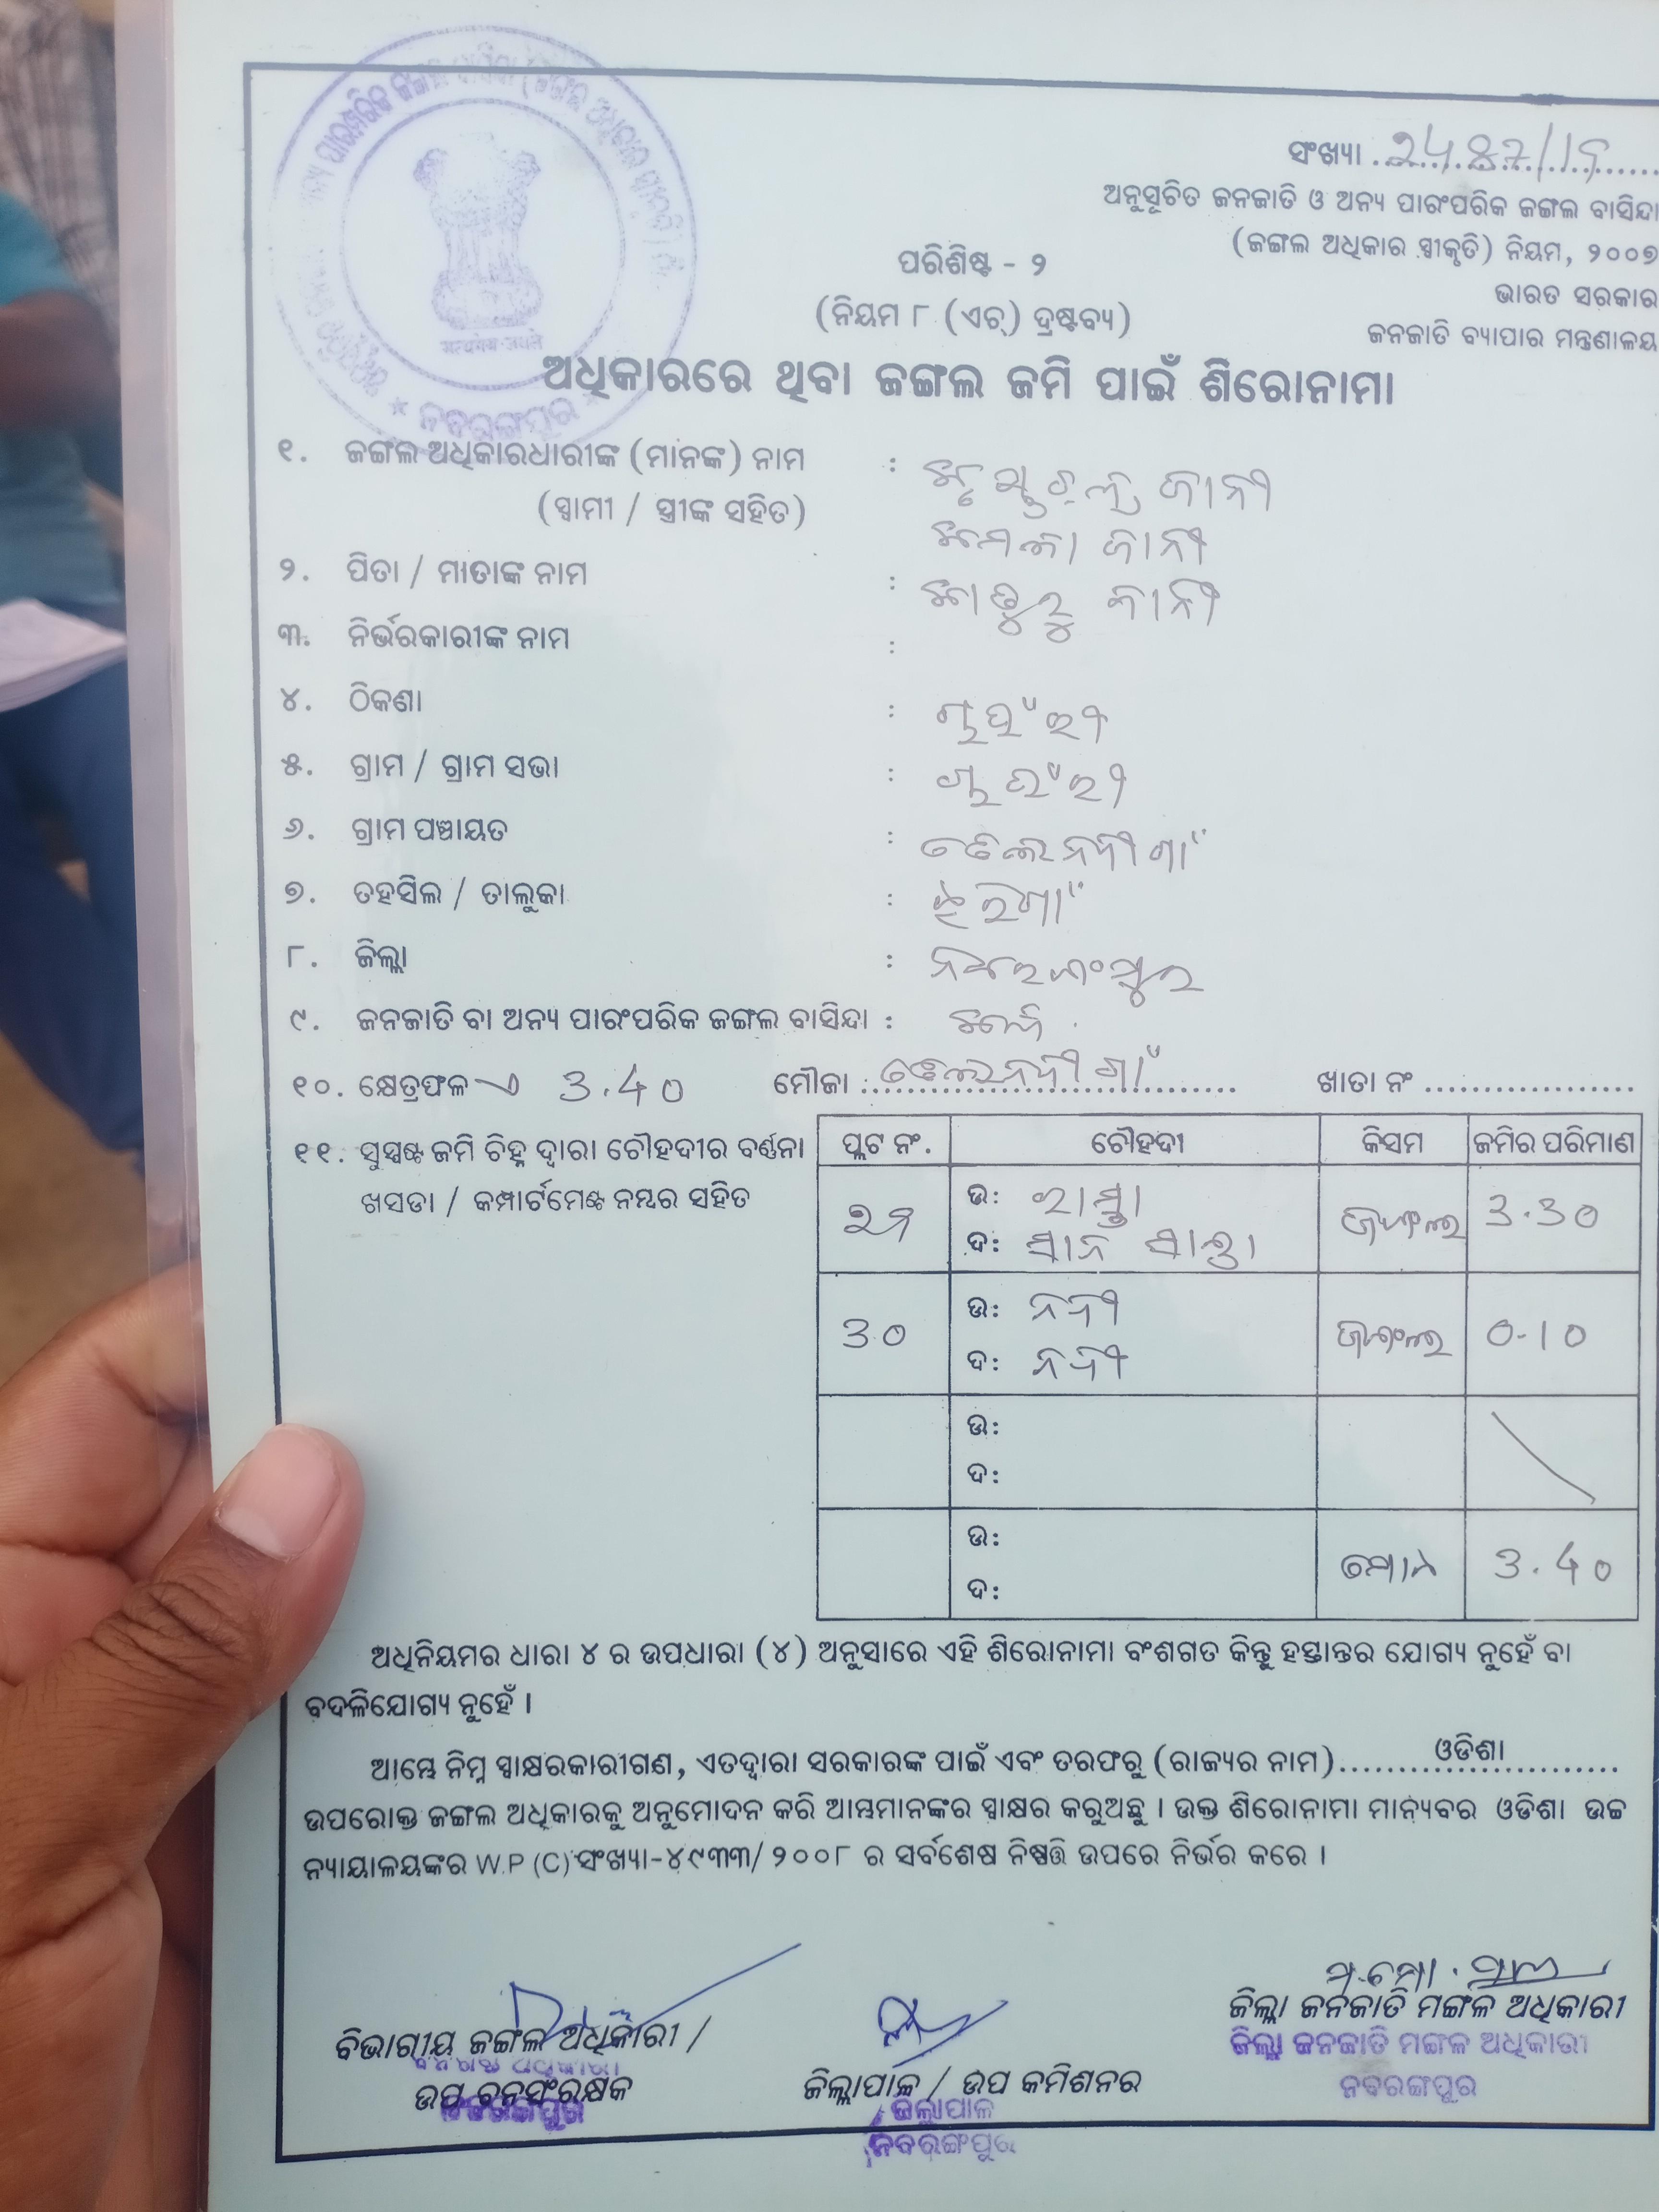 ସଂଖ୍ୟା
ଅନୁସୂଚିତ ଜନଜାତି ଓ ଅନ୍ୟ ପାରଂପରିକ ଜଙ୍ଗଲ ବାସିନ୍ଦା
(ଜଙ୍ଗଲ ଅଧିକାର ସ୍ୱୀକୃତି) ନିୟମ, ୨୦୦୭
ଭାରତ ସରକାର
ଜନଜାତି ବ୍ୟାପାର ମନ୍ତ୍ରଣାଳୟ
ପରିଶିଷ୍ଟ - ୨
(ନିୟମ ୮ (ଏଚ୍) ଦ୍ରଷ୍ଟବ୍ୟ)
सत्यमेव जयते
ନବରଙ୍ଗପୁର
ଅଧିକାରରେ ଥିବା ଜଙ୍ଗଲ ଜମି ପାଇଁ ଶିରୋନାମା
୧. ଜଙ୍ଗଲ ଅଧିକାରଧାରୀଙ୍କ (ମାନଙ୍କ) ନାମ : ଜାନୀ
(ସ୍ୱାମୀ / ସ୍ତ୍ରୀଙ୍କ ସହିତ) ଜାନୀ
୨. ପିତା / ମାତାଙ୍କ ନାମ : ଜାନୀ
୩. ନିର୍ଭରକାରୀଙ୍କ ନାମ :
୪. ଠିକଣା :
୫. ଗ୍ରାମ / ଗ୍ରାମ ସଭା :
୬. ଗ୍ରାମ ପଞ୍ଚାୟତ :
୭. ତହସିଲ / ତାଲୁକା : ଝରିଗାଁ
୮. ଜିଲ୍ଲା : ନବରଂଗପୁର
୯. ଜନଜାତି ବା ଅନ୍ୟ ପାରଂପରିକ ଜଙ୍ଗଲ ବାସିନ୍ଦା :
୧୦. କ୍ଷେତ୍ରଫଳ 3.40 ମୌଜା ଖାତା ନଂ
୧୧. ସୁସ୍ପଷ୍ଟ ଜମି ଚିହ୍ନ ଦ୍ୱାରା ଚୌହଦୀର ବର୍ଣ୍ଣନା
ଖସଡା / କମ୍ପାର୍ଟମେଣ୍ଟ ନମ୍ବର ସହିତ
ପ୍ଲଟ ନଂ. ଚୌହଦୀ କିସମ ଜମିର ପରିମାଣ
ଉ: ରାସ୍ତା ଜଙ୍ଗଲ 3.30
ଦ:
30 ଉ: ନଦୀ ଜଙ୍ଗଲ 0-10
ଦ: ନଦୀ
ଉ:
ଦ:
ଉ: ମୋଟ 3.40
ଦ:
ଅଧିନିୟମର ଧାରା ୪ ର ଉପଧାରା (୪) ଅନୁସାରେ ଏହି ଶିରୋନାମା ବଂଶଗତ କିନ୍ତୁ ହସ୍ତାନ୍ତର ଯୋଗ୍ୟ ନୁହେଁ ବା
ବଦଳିଯୋଗ୍ୟ ନୁହେଁ ।
ଆମ୍ଭେ ନିମ୍ନ ସ୍ୱାକ୍ଷରକାରୀଗଣ, ଏତଦ୍ୱାରା ସରକାରଙ୍କ ପାଇଁ ଏବଂ ତରଫରୁ (ରାଜ୍ୟର ନାମ) ଓଡିଶା
ଉପରୋକ୍ତ ଜଙ୍ଗଲ ଅଧିକାରକୁ ଅନୁମୋଦନ କରି ଆମ୍ଭମାନଙ୍କର ସ୍ୱାକ୍ଷର କରୁଅଛୁ । ଉକ୍ତ ଶିରୋନାମା ମାନ୍ୟବର ଓଡିଶା ଉଚ୍ଚ
ନ୍ୟାୟାଳୟଙ୍କର W.P (C) ସଂଖ୍ୟା-୪୯୩୩/୨୦୦୮ ର ସର୍ବଶେଷ ନିଷ୍ପତ୍ତି ଉପରେ ନିର୍ଭର କରେ ।
ବିଭାଗୀୟ ଜଙ୍ଗଲ ଅଧିକାରୀ /
ଉପ ବନସଂରକ୍ଷକ
ଜିଲ୍ଲାପାଳ / ଉପ କମିଶନର
ଜିଲ୍ଲାପାଳ
ନବରଙ୍ଗପୁର
ଜିଲ୍ଲା ଜନଜାତି ମଙ୍ଗଳ ଅଧିକାରୀ
ଜିଲ୍ଲା ଜନଜାତି ମଙ୍ଗଳ ଅଧିକାରୀ
ନବରଙ୍ଗପୁର